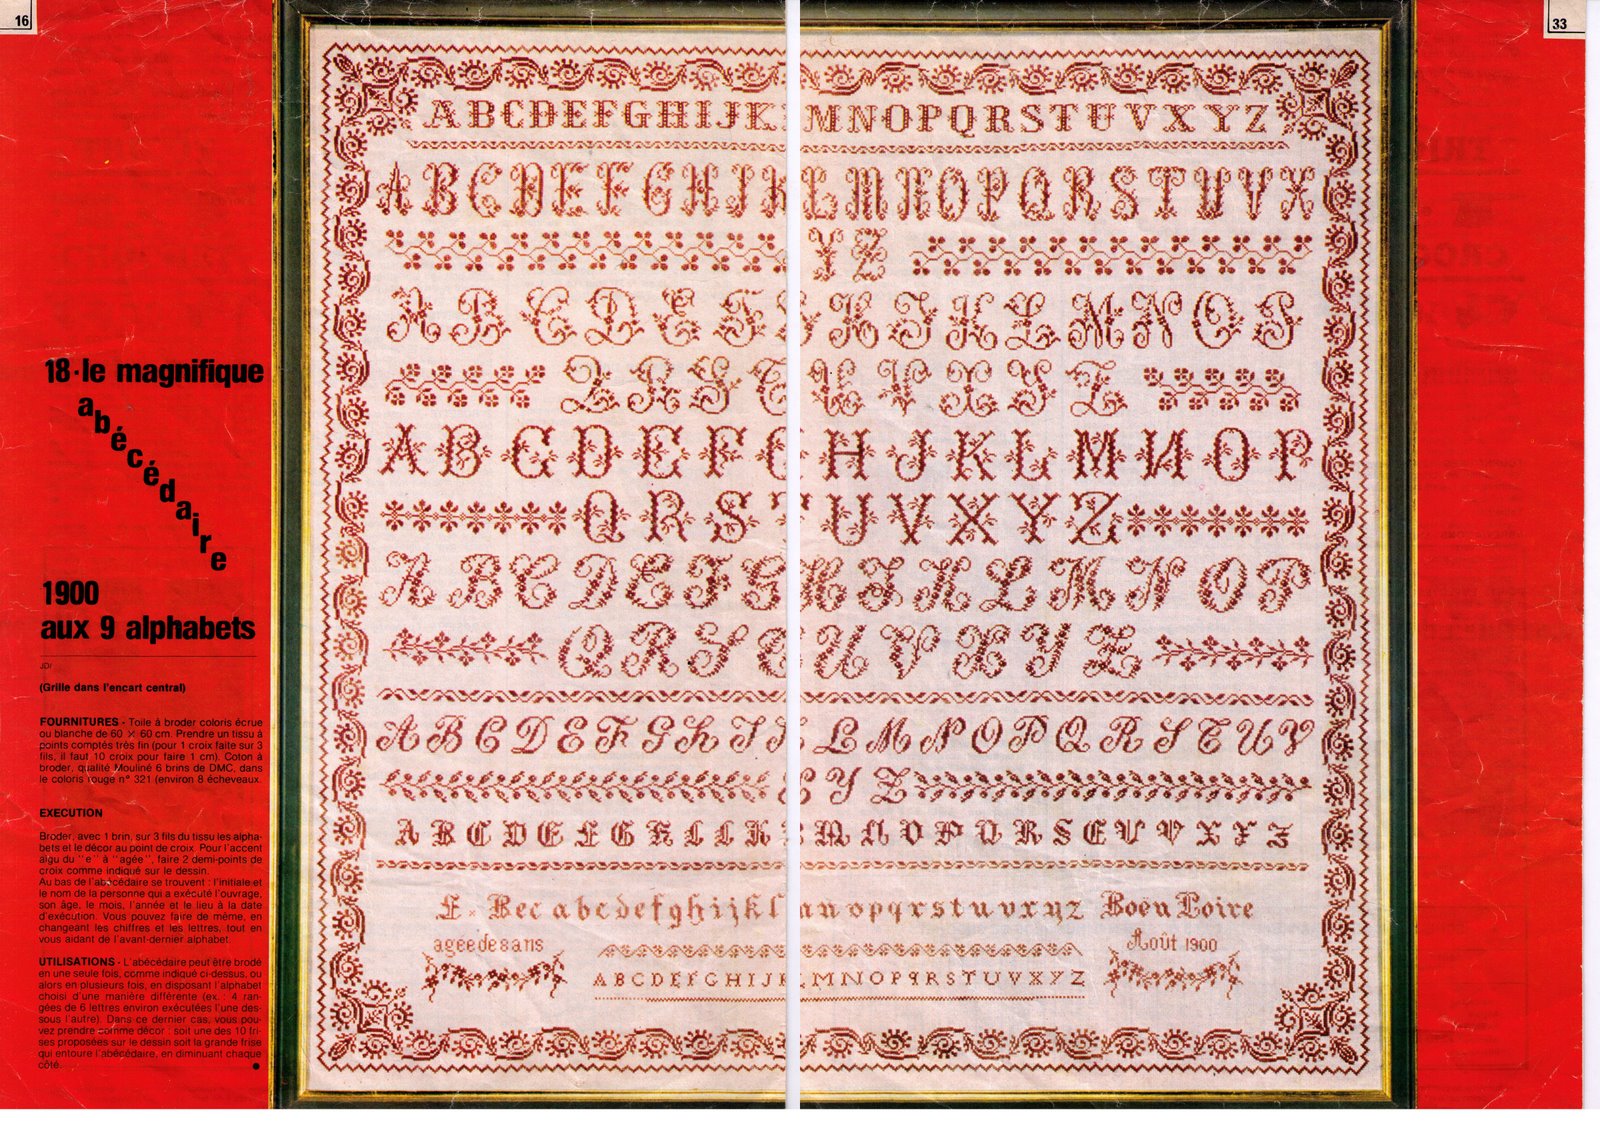 16
33
18·le magnifique
abécédaire
1900
aux 9 alphabets
(Grille dans l'encart central)
FOURNITURES - Toile à broder coloris écrue
ou blanche de 60 × 60 cm. Prendre un tissu à
points comptés très fin (pour 1 croix faite sur 3
fils, il faut 10 croix pour faire 1 cm). Coton à
broder, qualité Mouliné 6 brins de DMC, dans
le coloris rouge n° 321 (environ 8 écheveaux.
EXECUTION
Broder, avec 1 brin, sur 3 fils du tissu les alpha-
bets et le décor au point de croix. Pour l'accent
aigu du ''e'' à ''agée'', faire 2 demi-points de
croix comme indiqué sur le dessin.
Au bas de l'abécédaire se trouvent : l'initiale et
le nom de la personne qui a exécuté l'ouvrage,
son âge, le mois, l'année et le lieu à la date
d'exécution. Vous pouvez faire de même, en
changeant les chiffres et les lettres, tout en
vous aidant de l'avant-dernier alphabet.
UTILISATIONS - L'abécédaire peut être brodé
en une seule fois, comme indiqué ci-dessus, ou
alors en plusieurs fois, en disposant l'alphabet
choisi d'une manière différente (ex. : 4 ran-
gées de 6 lettres environ exécutées l'une des-
sous l'autre). Dans ce dernier cas, vous pou-
vez prendre comme décor : soit une des 10 fri-
ses proposées sur le dessin soit la grande frise
qui entoure l'abécédaire, en diminuant chaque
côté.
A B C D E F G H I J K M N O P Q R S T U V X Y Z
A B C D E F G H I J K L M N O P Q R S T U V X
Y Z
A B C D E F H I K L M N O P
Q R S T U V X Y Z
A B C D E F G H J K L M N O P
Q R S T U V X Y Z
A B C D E F G H I K L M N O P
Q R S T U V X Y Z
A B C D E F G H I K L M N O P Q R S T U V
X Y Z
A B C D E F G H I J K L M N O P Q R S T U V X Y Z
E × Bec a b c d e f g h i j k l m n o p q r s t u v x y z Boën Loire
agée de 8 ans
Août 1900
A B C D E F G H I J K L M N O P Q R S T U V X Y Z